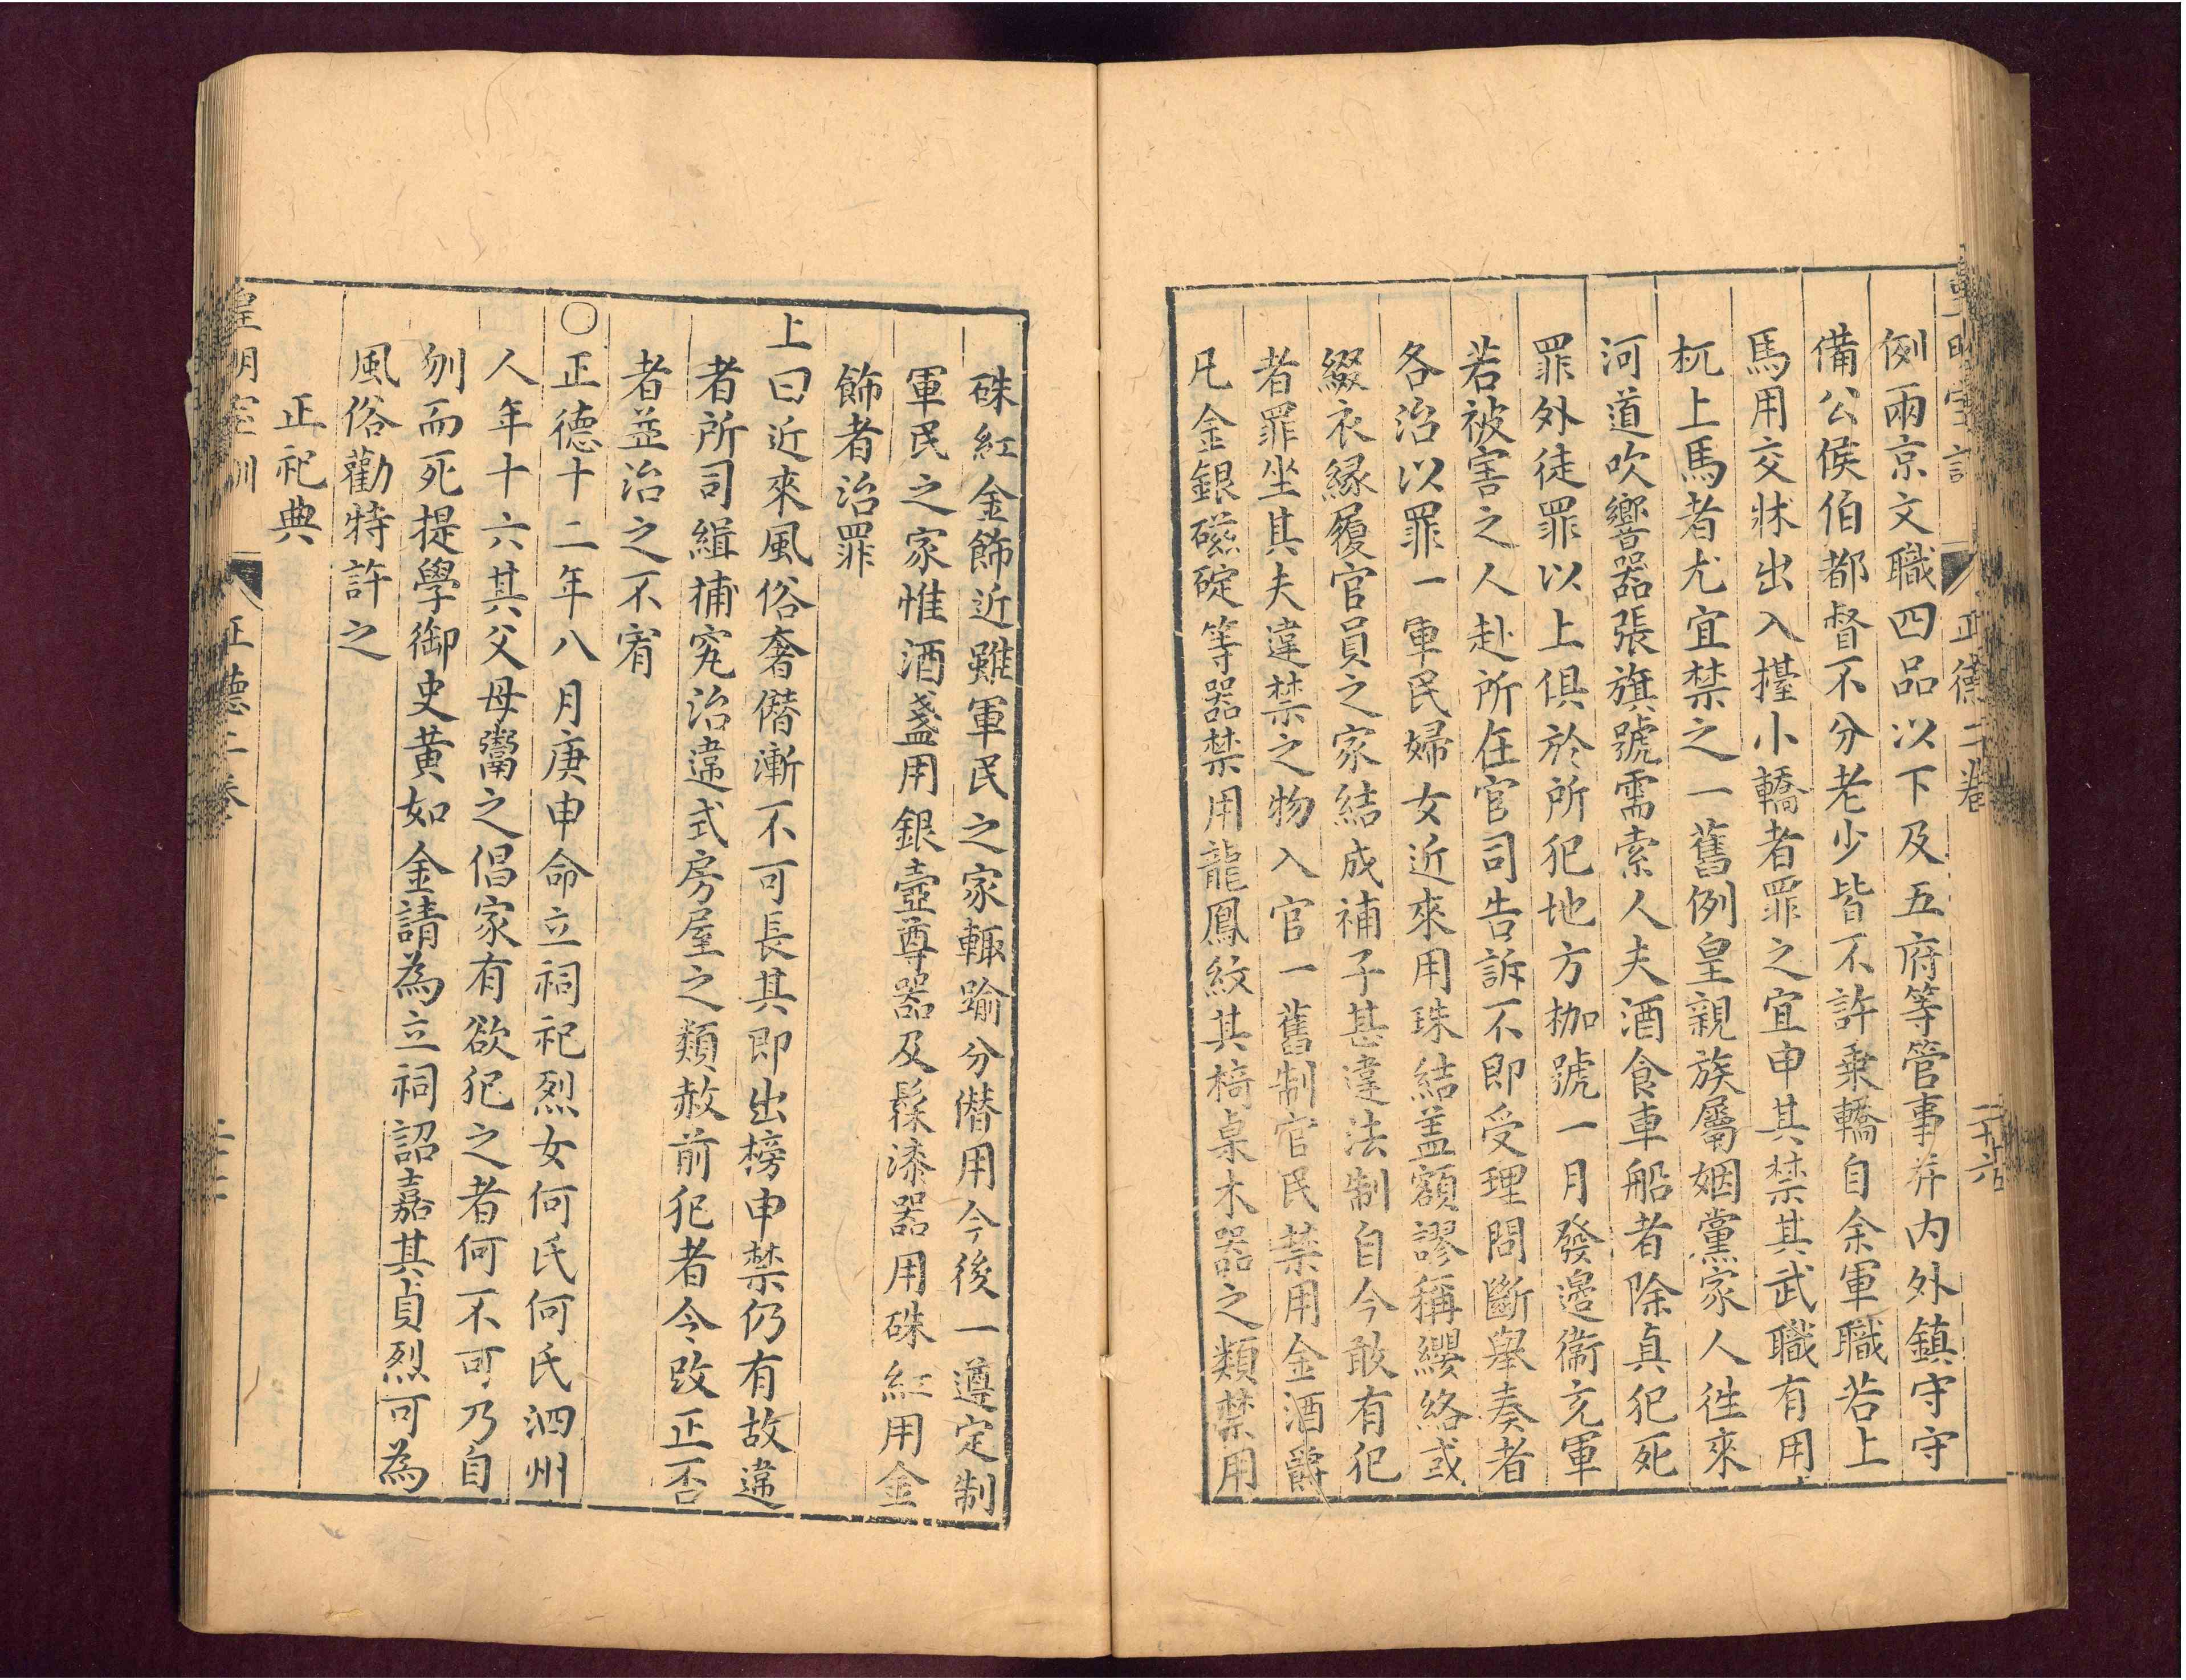 例兩京文職四品以下及五府等管事并内外鎮守守
備公侯伯都督不分老少皆不許乗轎自余軍職若上
馬用交牀出入擡小轎者罪之宜申其禁其武職有用
杌上馬者尤宜禁之一舊例皇親族屬姻黨家人徃來
河道吹響器張旗號需索人夫酒食車船者除真犯死
罪外徒罪以上俱於所犯地方枷號一月發邊衞充軍
若被害之人赴所在官司告訴不即受理問斷舉奏者
各治以罪一軍民婦女近來用珠結盖額謬稱纓絡或
綴衣縁履官員之家結成補子甚違法制自今敢有犯
者罪坐其夫違禁之物入官一舊制官民禁用金酒爵
凡金銀磁碇等器禁用龍鳳紋其椅桌木器之類禁用
硃紅金飾近雖軍民之家輙踰分僣用今後一遵定制
軍民之家惟酒盞用銀壺尊器及髹漆器用硃紅用金
飾者治罪
上曰近來風俗奢僣漸不可長其即出榜申禁仍有故違
者所司緝捕究治違式房屋之類赦前犯者令改正否
者並治之不宥
○正德十二年八月庚申命立祠祀烈女何氏何氏泗州
人年十六其父母鬻之倡家有欲犯之者何不可乃自
刎而死提學御史黄如金請為立祠詔嘉其貞烈可為
風俗勸特許之
正祀典
皇明宝訓 正德二卷